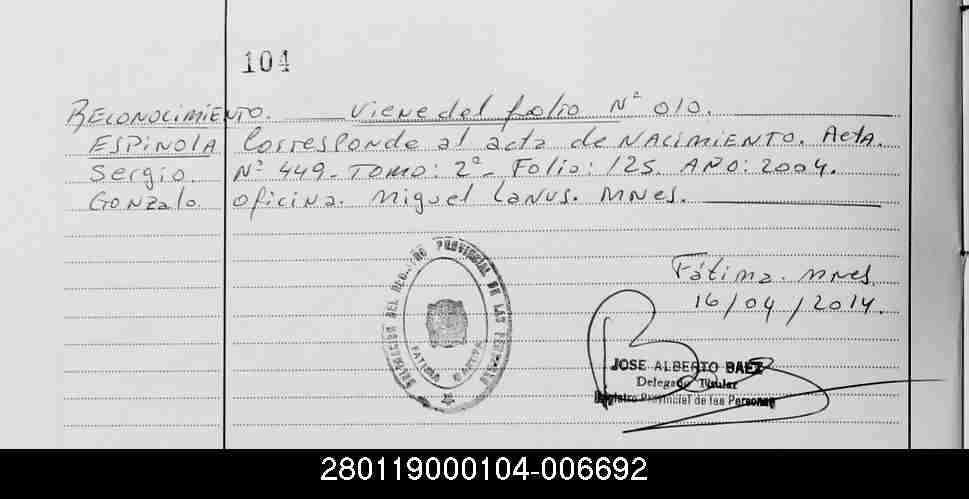 104
RECONOCIMIENTO. Viene del folio Nº 010.
ESPINOLA Corresponde al acta de NACIMIENTO. Acta.
Sergio Nº 449- TOMO: 2º- Folio: 125. AÑO: 2004.
Gonzalo. oficina. Miguel Lanus. MNES.
Fátima. MNes.
16/04/2014.
JOSE ALBERTO BAEZ
Delegado Titular
Registro Provincial de las Personas
PROVINCIAL DE LAS PERSONAS
FATIMA
280119000104-006692